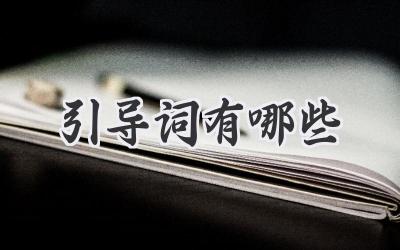 引导词有哪些